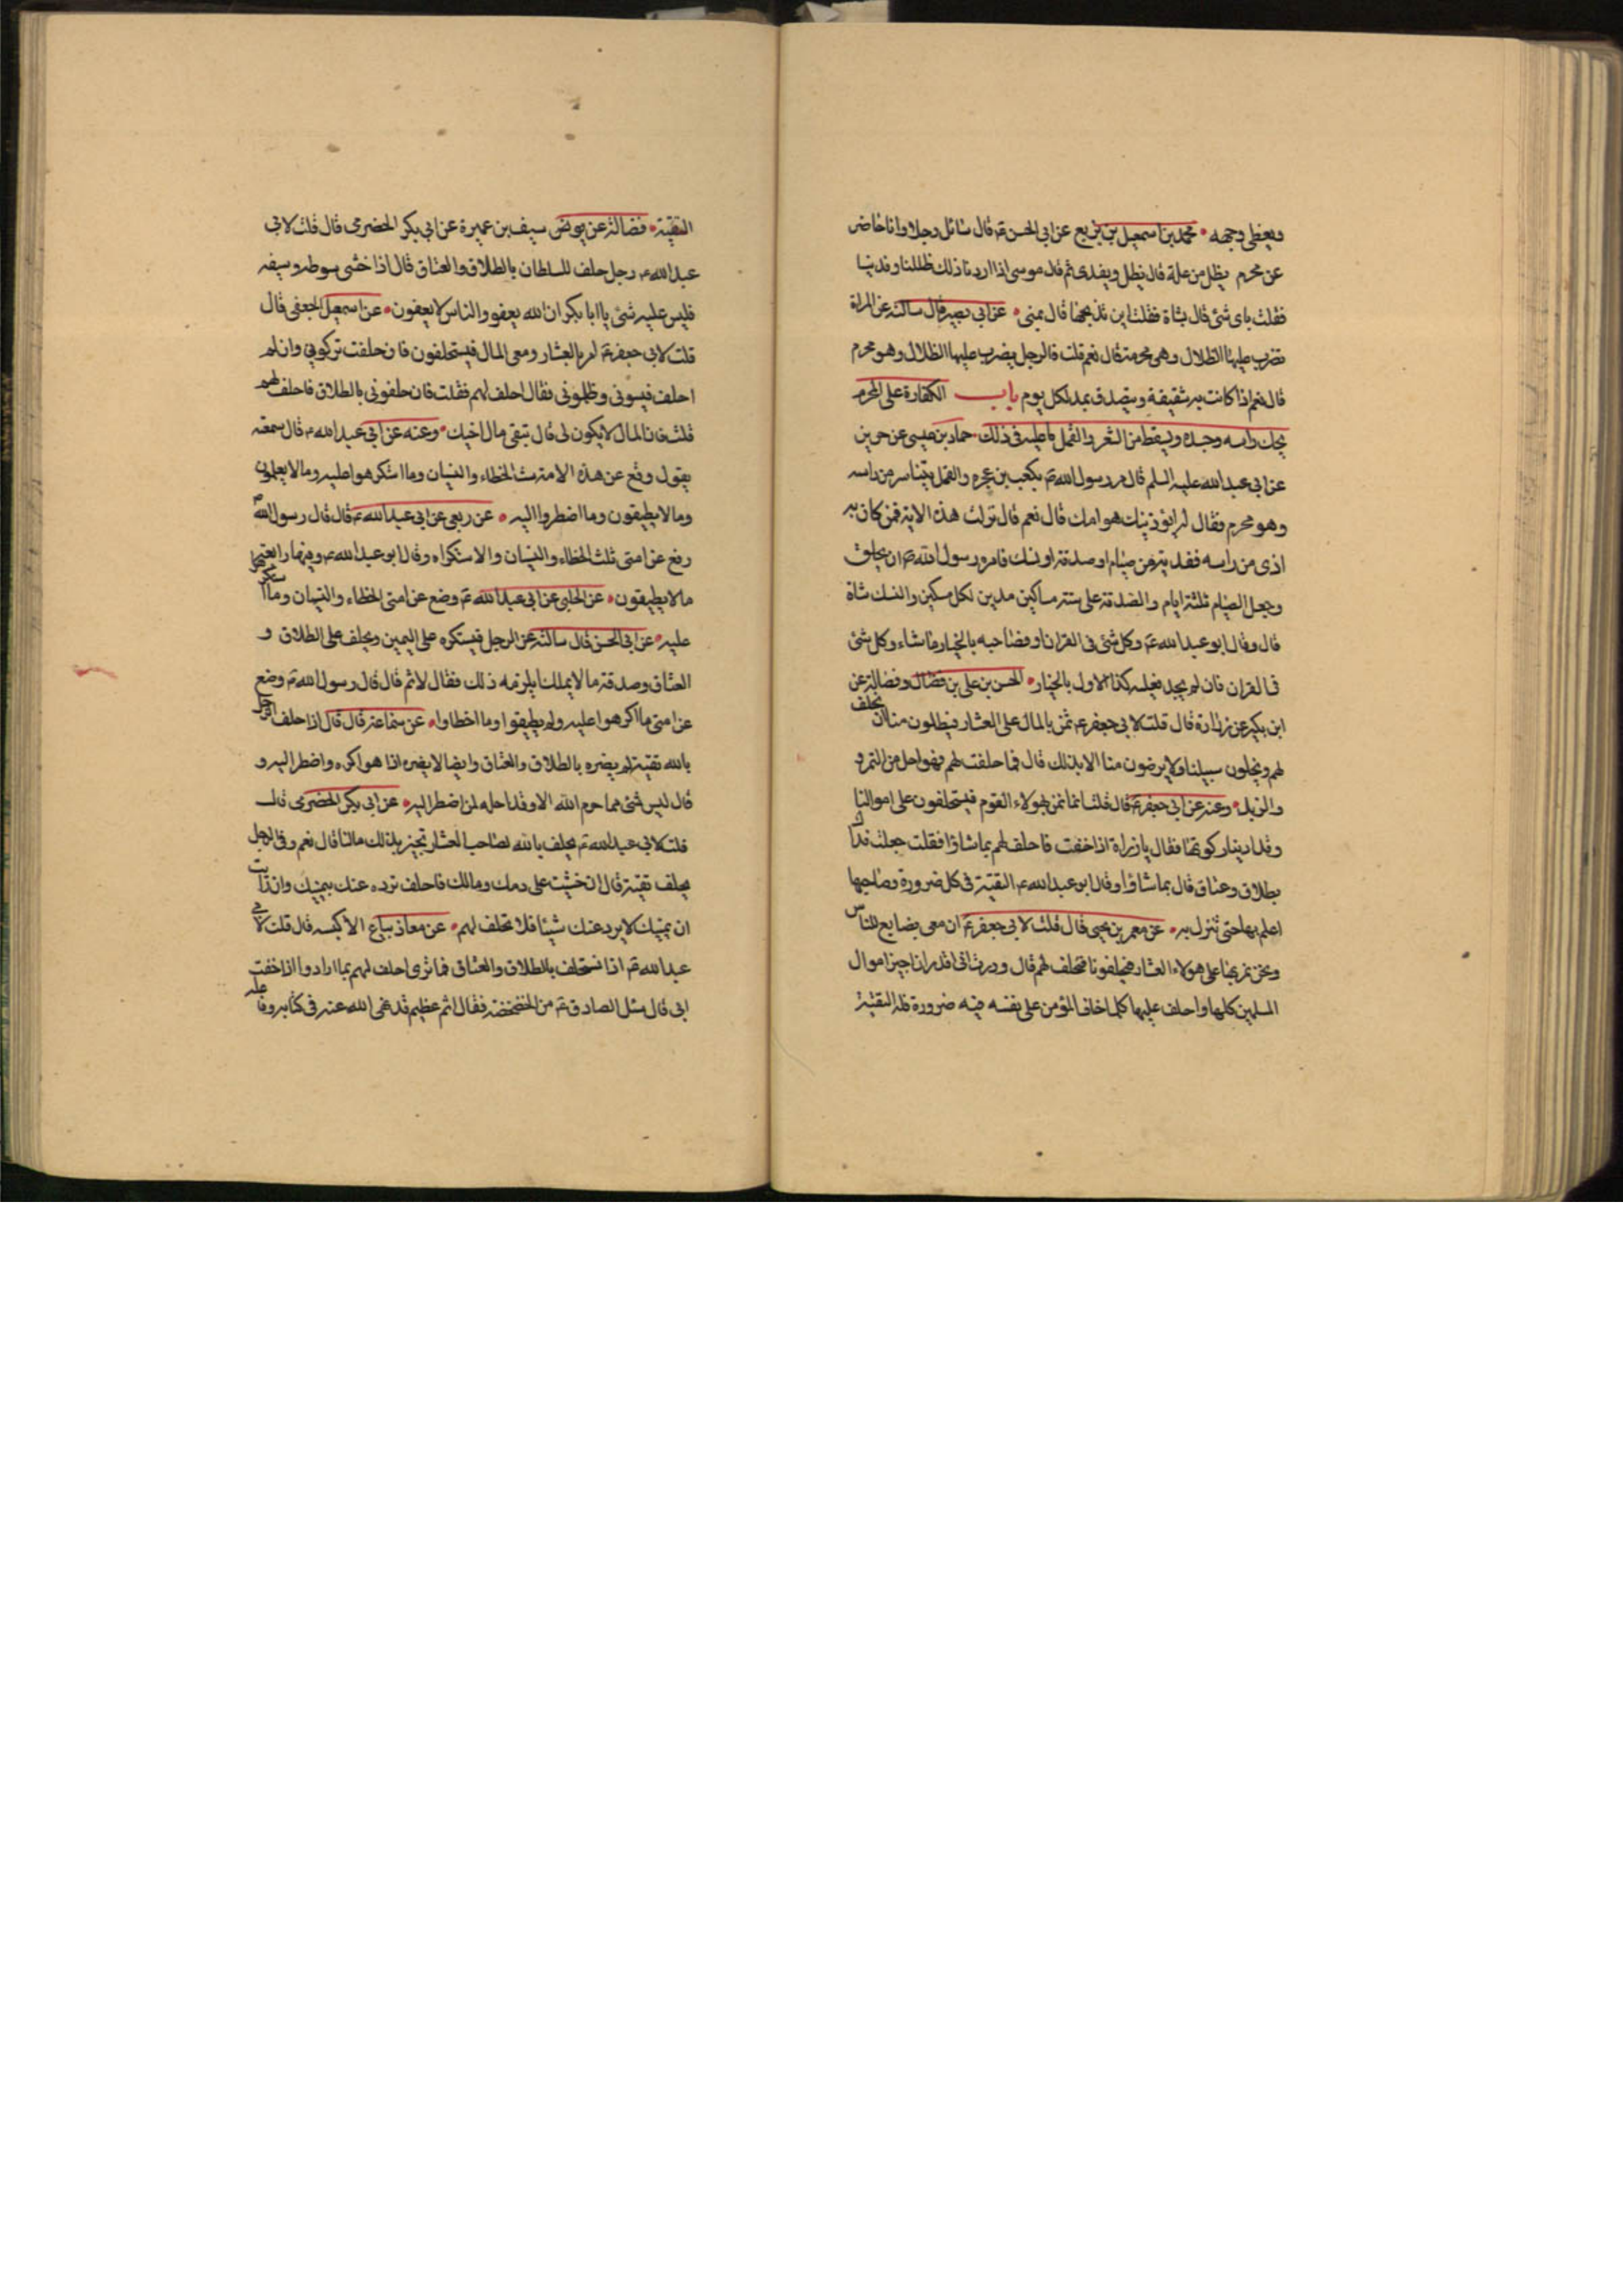 ويغطى وجهه محمد بن اسمعيل بن بزيع عن ابى الحسن ع قال سائل رجل وانا حاضر
عن محرم يظل من علة قال يظل ويفدى ثم قال موسى اذا اردنا ذلك ظللنا وفدينا
فقلت باى شئ قال بشاة فقلت اين نذبحها قال بمنى عن ابى بصير قال سالته عن المراة
تضرب عليها الظلال وهى محرمة قال نعم قلت فالرجل يضرب عليها الظلال وهو محرم
قال نعم اذا كانت به شقيقة ويتصدق بمد لكل يوم باب الكفارة على المحرم
يحك راسه وجسده ويسقط من الشعر والقمل ما عليه فى ذلك حماد بن عيسى عن حريز
عن ابى عبد الله عليه السلم قال مر رسول الله ص بكعب بن عجره والقمل يتناثر من راسه
وهو محرم فقال له ايؤذينك هوامك قال نعم قال نزلت هذه الاية فمن كان به
اذى من راسه ففدية من صيام او صدقة او نسك فامره رسول الله ص ان يحلق
وجعل الصيام ثلثة ايام والصدقة على ستة مساكين مدين لكل مسكين والنسك شاة
قال وقال ابو عبد الله ع وكل شئ فى القران او فصاحبه بالخيار ما شاء وكل شئ
فى القران فان لم يجد فعليه كذا الاول بالخيار الحسن بن على بن فضال وفضالة عن
ابن بكير عن زرارة قال قلت لابى جعفر ع نمر بالمال على العشار فيطلبون منا ان نحلف
لهم ويخلون سبيلنا ولا يرضون منا الا بذلك قال فما حلفت لهم فهو احل من التمر و
والزبل وعنه عن ابى جعفر ع قال قلت انما نمر بهولاء القوم فيستحلفون على اموالنا
وقد ادينا زكوتها فقال يا زراة اذا خفت فاحلف لهم بما شاؤا فقلت جعلت فداك
بطلاق وعتاق قال بما شاؤا وقال ابو عبد الله ع التقية فى كل ضرورة وصاحبها
اعلم بها حتى تنزل به عن معمر بن يحيى قال قلت لابى جعفر ع ان معى بضايع للناس
ونحن نمر بها على هولاء العشار فيحلفونا فنحلف لهم قال وددت انى اقدر ان اجيز اموال
المسلمين كلها واحلف عليها كلما خاف المؤمن على نفسه فيه ضرورة فله التقية
التقية فضالة عن سيف بن عميرة عن ابى بكر الحضرمى قال قلت لابى
عبد الله ع رجل حلف للسلطان بالطلاق والعتاق قال اذا خشى سوطه وسيفه
فليس عليه شئ يا ابا بكر ان الله يعفو والناس لا يعفون عن اسمعيل الجعفى قال
قلت لابى جعفر ع امر بالعشار ومعى المال فيستحلفون فان حلفت تركونى وان لم
احلف فتشونى وظلمونى فقال احلف لهم فقلت فان حلفونى بالطلاق فاحلف لهم
قلت فان المال لا يكون لى قال تتقى مال اخيك وعنه عن ابى عبد الله ع قال سمعته
يقول وقع عن هذه الامة ست الخطاء والنسيان وما استكرهوا عليه وما لا يعلمون
وما لا يطيقون وما اضطروا اليه عن ربعى عن ابى عبد الله ع قال قال رسول الله ص
رفع عن امتى ثلث الخطاء والنسيان والاستكراه وقال ابو عبد الله ع وفيها رابعة
ما لا يطيقون عن الحلبى عن ابى عبد الله ع وضع عن امتى الخطاء والنسيان وما استكرهوا
عليه عن ابى الحسن قال سالته عن الرجل فيستكره على اليمين ويحلف على الطلاق و
العتاق وصدقة ما لا يملك ايلزمه ذلك فقال لا ثم قال قال رسول الله ص وضع
عن امتى ما اكرهوا عليه ولم يطيقوا وما اخطاوا عن سماعة قال قال اذا حلف الرجل
بالله تقية لم يضره بالطلاق والعتاق وايضا لا يضره اذا هو اكره واضطر اليه و
قال ليس شئ مما حرم الله الا وقد احله لمن اضطر اليه عن ابى بكر الحضرمى قال
قلت لابى عبد الله ع يحلف بالله لصاحب العشار تجيز بذلك مالنا قال نعم وفى الرجل
يحلف تقية قال ان خشيت على دمك ومالك فاحلف ترده عنك بيمينك وان رايت
ان يمينك لا يرد عنك شيئا فلا تحلف لهم عن معاذ بياع الاكيسه قال قلت لابى
عبد الله ع انا نستحلف بالطلاق والعتاق فما ترى احلف لهم بما ارادوا اذا خفت
ابى قال سئل الصادق ع من الخضخضة فقال اثم عظيم قد نهى الله عنه فى كتابه وفاعله